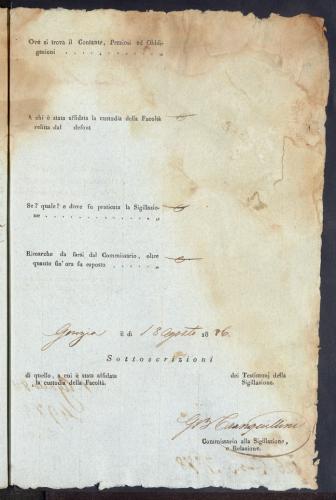 Ove si trova il Contante, Preziosi ed Obbli-
gazioni . . . . . . . . . . . . . „
A chi è stata affidata la custodia della Facoltà
relitta dal defont
Se? quale? e dove fu praticata la Sigillazio-
ne . . . . . . . . . . . . . . „
Rimarche da farsi dal Commissario, oltre
quanto fin' ora fu esposto . . . . . „
Gorizia il dì 18 agosto 1826.
Sottoscrizioni
di quello, a cui è stata affidata
la custodia della Facoltà.
dei Testimonj della
Sigillazione.
GB Tranquillini
Commissario alla Sigillazione,
e Relazione.